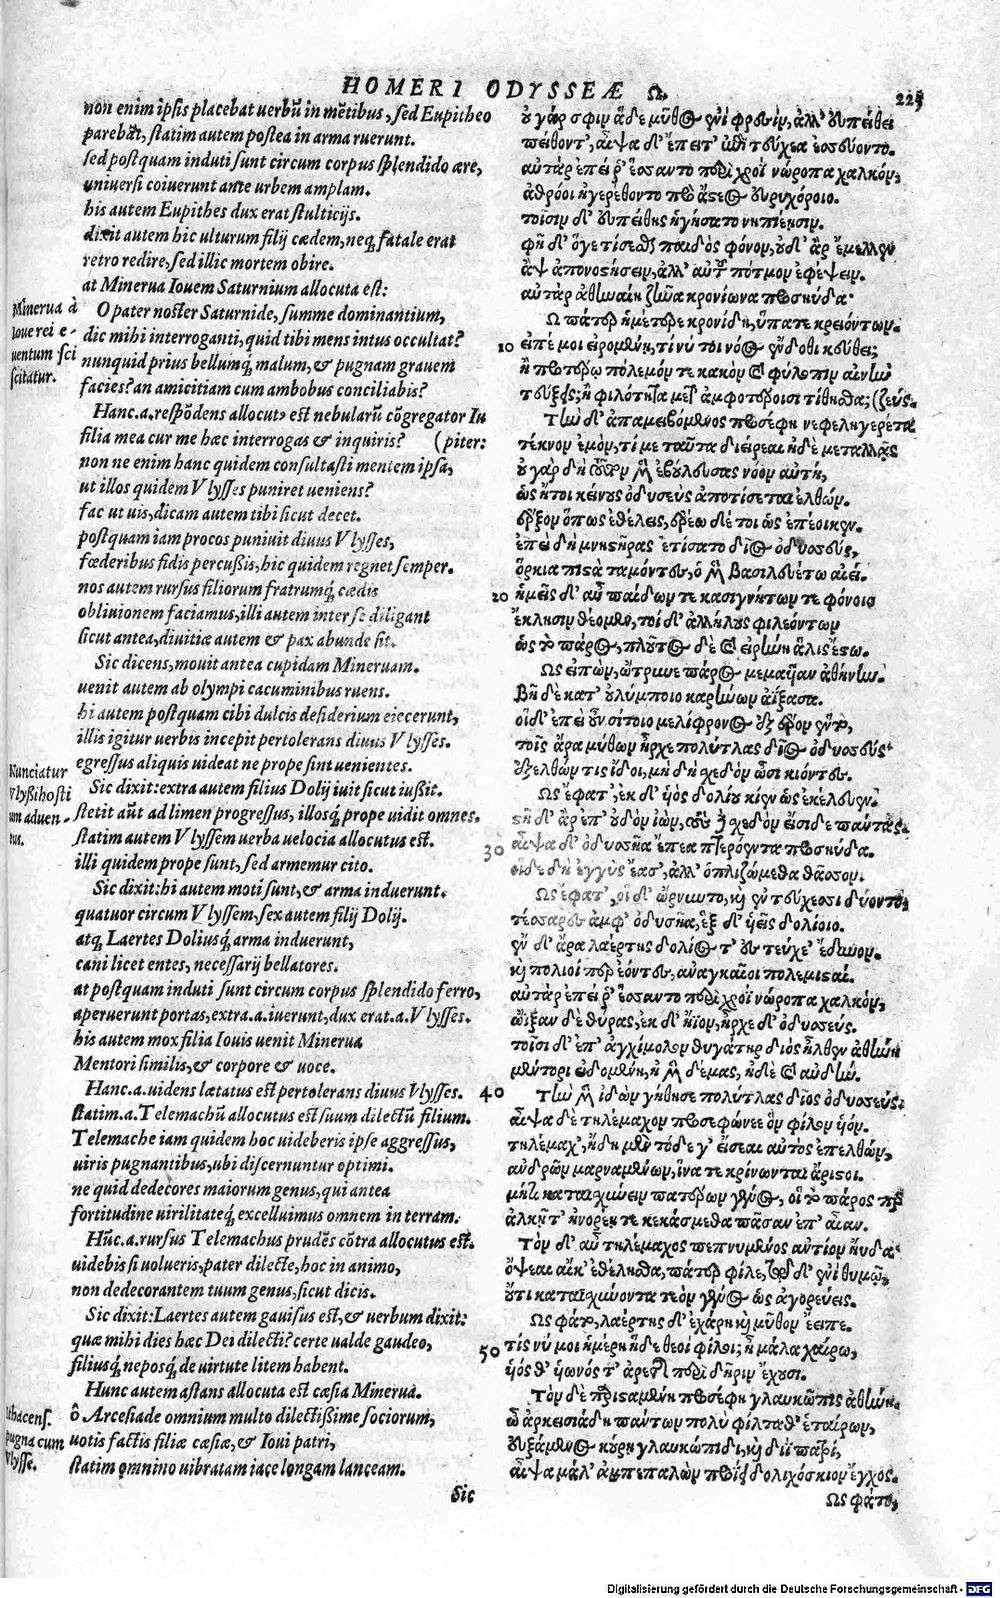 HOMERI ODYSSEÆ Ω. 225
non enim ipsis placebat uerbũ in mẽtibus, sed Eupitheo
parebãt, statim autem postea in arma ruerunt.
sed postquam induti sunt circum corpus splendido ære,
uniuersi coiuerunt ante urbem amplam.
his autem Eupithes dux erat stulticijs.
dixit autem hic ulturum filij cædem, neq; fatale erat
retro redire, sed illic mortem obire.
at Minerua Iouem Saturnium allocuta est:
O pater noster Saturnide, summe dominantium,
dic mihi interroganti, quid tibi mens intus occultat?
nunquid prius bellumq́; malum, & pugnam grauem
facies? an amicitiam cum ambobus conciliabis?
Hanc.a.respõdens allocut9 est nebularũ cõgregator Iu
filia mea cur me hæc interrogas & inquiris? (piter:
non ne enim hanc quidem consultasti mentem ipsa,
ut illos quidem Vlysses puniret ueniens?
fac ut uis, dicam autem tibi sicut decet.
postquam iam procos puniuit diuus Vlysses,
fœderibus fidis percußis, hic quidem regnet semper.
nos autem rursus filiorum fratrumq́; cædis
obliuionem faciamus, illi autem inter se diligant
sicut antea, diuitiæ autem & pax abunde sit.
Sic dicens, mouit antea cupidam Mineruam.
uenit autem ab olympi cacuminibus ruens.
hi autem postquam cibi dulcis desiderium eiecerunt,
illis igitur uerbis incepit pertolerans diuus Vlysses.
egressus aliquis uideat ne prope sint uenientes.
Sic dixit: extra autem filius Dolij iuit sicut iußit.
stetit aũt ad limen progressus, illosq́; prope uidit omnes.
statim autem Vlyssem uerba uelocia allocutus est.
illi quidem prope sunt, sed armemur cito.
Sic dixit: hi autem moti sunt, & arma induerunt.
quatuor circum Vlyssem, sex autem filij Dolij.
atq; Laertes Doliusq́; arma induerunt,
cani licet entes, necessarij bellatores.
at postquam induti sunt circum corpus splendido ferro,
aperuerunt portas, extra.a.iuerunt, dux erat.a.Vlysses.
his autem mox filia Iouis uenit Minerua
Mentori similis, & corpore & uoce.
Hanc.a.uidens lætatus est pertolerans diuus Vlysses.
statim.a.Telemachũ allocutus est suum dilectũ filium.
Telemache iam quidem hoc uideberis ipse aggressus,
uiris pugnantibus, ubi discernuntur optimi.
ne quid dedecores maiorum genus, qui antea
fortitudine uirilitateq́; excelluimus omnem in terram.
Hũc.a.rursus Telemachus prudẽs cõtra allocutus est.
uidebis si uolueris, pater dilecte, hoc in animo,
non dedecorantem tuum genus, sicut dicis.
Sic dixit: Laertes autem gauisus est, & uerbum dixit:
quæ mihi dies hæc Dei dilecti? certe ualde gaudeo,
filiusq́; neposq́; de uirtute litem habent.
Hunc autem astans allocuta est cæsia Minerua.
ô Arcesiade omnium multo dilectißime sociorum,
uotis factis filiæ cæsiæ, & Ioui patri,
statim omnino uibratam iace longam lanceam.
Sic
Minerua à
Ioue rei e-
uentum sci
scitatur.
Nunciatur
Vlyßi hosti
um aduen-
tus.
Ithacens.
pugna cum
Vlysse.
οὐ γάρ σφιν ἅδε μῦθος ἐνὶ φρεσὶν, ἀλλ' εὐπείθει
πείθοντ', αἶψα δ' ἔπειτ' ἐπὶ τεύχεα ἐσσεύοντο.
αὐτὰρ ἐπεί ῥ' ἕσαντο περὶ χροῒ νώροπα χαλκὸν,
ἀθρόοι ἠγερέθοντο πρὸ ἄστεος εὐρυχόροιο.
τοῖσιν δ' εὐπείθης ἡγήσατο νηπιέῃσιν.
φῆ δ' ὅγε τίσεσθαι παιδὸς φόνον, οὐδ' ἂρ ἔμελλεν
ἂψ ἀπονοστήσειν, ἀλλ' αὐτοῦ πότμον ἐφέψειν.
αὐτὰρ ἀθηναίη ζῆνα κρονίωνα προσηύδα·
Ω πάτερ ἡμέτερε κρονίδη, ὕπατε κρειόντων.
10 εἰπέ μοι εἰρομένῃ, τί νύ τοι νόος ἔνδοθι κεύθει;
ἢ προτέρω πόλεμόν τε κακὸν καὶ φύλοπιν αἰνὴν
τεύξεις; ἦ φιλότητα μετ' ἀμφοτέροισι τίθησθα; (ζεύς.
Τὴν δ' ἀπαμειβόμενος προσέφη νεφεληγερέτα
τέκνον ἐμὸν, τί με ταῦτα διείρεαι ἠδὲ μεταλλᾷς
οὐ γὰρ δὴ τοῦτον μὲν ἐβούλευσας νόον αὐτὴ,
ὡς ἤτοι κείνους ὀδυσεὺς ἀποτίσεται ἐλθών.
ἔρξον ὅπως ἐθέλεις, ἐρέω δέ τοι ὡς ἐπέοικεν.
ἐπεὶ δὴ μνηστῆρας ἐτίσατο δῖος ὀδυσσεὺς,
ὅρκια πιστὰ ταμόντες, ὁ μὲν βασιλευέτω αἰεί.
20 ἡμεῖς δ' αὖ παίδων τε κασιγνήτων τε φόνοιο
ἔκλησιν θέομεν, τοὶ δ' ἀλλήλους φιλεόντων
ὡς τὸ πάρος, πλοῦτος δὲ καὶ εἰρήνη ἅλις ἔστω.
Ως εἰπὼν, ὤτρυνε πάρος μεμαυῖαν ἀθήνην.
Βῆ δὲ κατ' οὐλύμποιο καρήνων ἀΐξασα.
οἱ δ' ἐπεὶ οὖν σίτοιο μελίφρονος ἐξ ἔρον ἕντο,
τοῖς ἄρα μύθων ἦρχε πολύτλας δῖος ὀδυσσεύς·
ἐξελθών τις ἴδοι, μὴ δὴ σχεδὸν ὦσι κιόντες.
Ως ἔφατ', ἐκ δ' υἱὸς δολίου κίεν ὡς ἐκέλευεν.
στῆ δ' ἂρ ἐπ' οὐδὸν ἰὼν, τοὺς δὲ σχεδὸν εἴσιδε πάντας.
30 αἶψα δ' ὀδυσσῆα ἔπεα πτερόεντα προσηύδα.
οἵδε δὴ ἐγγὺς ἔασ', ἀλλ' ὁπλιζώμεθα θᾶσσον.
Ως ἔφατ', οἱ δ' ὤρνυντο, καὶ ἐν τεύχεσι δύοντο,
τέσσαρες ἀμφ' ὀδυσῆα, ἓξ δ' υἱεῖς δολίοιο.
ἐν δ' ἄρα λαέρτης δολίος τ' ἐς τεύχε' ἔδυνον.
καὶ πολιοί περ ἐόντες, ἀναγκαῖοι πολεμισταί.
αὐτὰρ ἐπεί ῥ' ἕσσαντο περὶ χροῒ νώροπα χαλκὸν,
ὤϊξαν δὲ θύρας, ἐκ δ' ἤϊον, ἦρχε δ' ὀδυσσεύς.
τοῖσι δ' ἐπ' ἀγχίμολον θυγάτηρ διὸς ἦλθεν ἀθήνη
μέντορι εἰδομένη, ἠμὲν δέμας, ἠδὲ καὶ αὐδήν.
40 Τὴν μὲν ἰδὼν γήθησε πολύτλας δῖος ὀδυσσεύς.
αἶψα δὲ τηλέμαχον προσεφώνεεν ὃν φίλον υἱόν.
τηλέμαχ', ἤδη μὲν τόδε γ' εἴσεαι αὐτὸς ἐπελθὼν,
ἀνδρῶν μαρναμένων, ἵνα τε κρίνωνται ἄριστοι.
μήτι καταισχύνειν πατέρων γένος, οἳ τὸ πάρος περ
ἀλκῇ τ' ἠνορέῃ τε κεκάσμεθα πᾶσαν ἐπ' αἶαν.
Τὸν δ' αὖ τηλέμαχος πεπνυμένος ἀντίον ηὔδα·
ὄψεαι αἴκ' ἐθέλῃσθα, πάτερ φίλε, τῷδ' ἐνὶ θυμῷ,
οὔτι καταισχύνοντα τεὸν γένος ὡς ἀγορεύεις.
Ως φάτο, λαέρτης δ' ἐχάρη καὶ μῦθον ἔειπε.
50 τίς νύ μοι ἡμέρη ἥδε θεοὶ φίλοι; ἦ μάλα χαίρω,
υἱός θ' υἱωνός τ' ἀρετῆς περὶ δῆριν ἔχουσι.
Τὸν δὲ παρισταμένη προσέφη γλαυκῶπις ἀθήνη.
ὦ ἀρκεισιάδη πάντων πολὺ φίλταθ' ἑταίρων,
εὐξάμενος κούρῃ γλαυκώπιδι, καὶ διῒ πατρὶ,
αἶψα μάλ' ἀμπεπαλὼν προΐει δολιχόσκιον ἔγχος.
Ως φάτο,
Digitalisierung gefördert durch die Deutsche Forschungsgemeinschaft - DFG